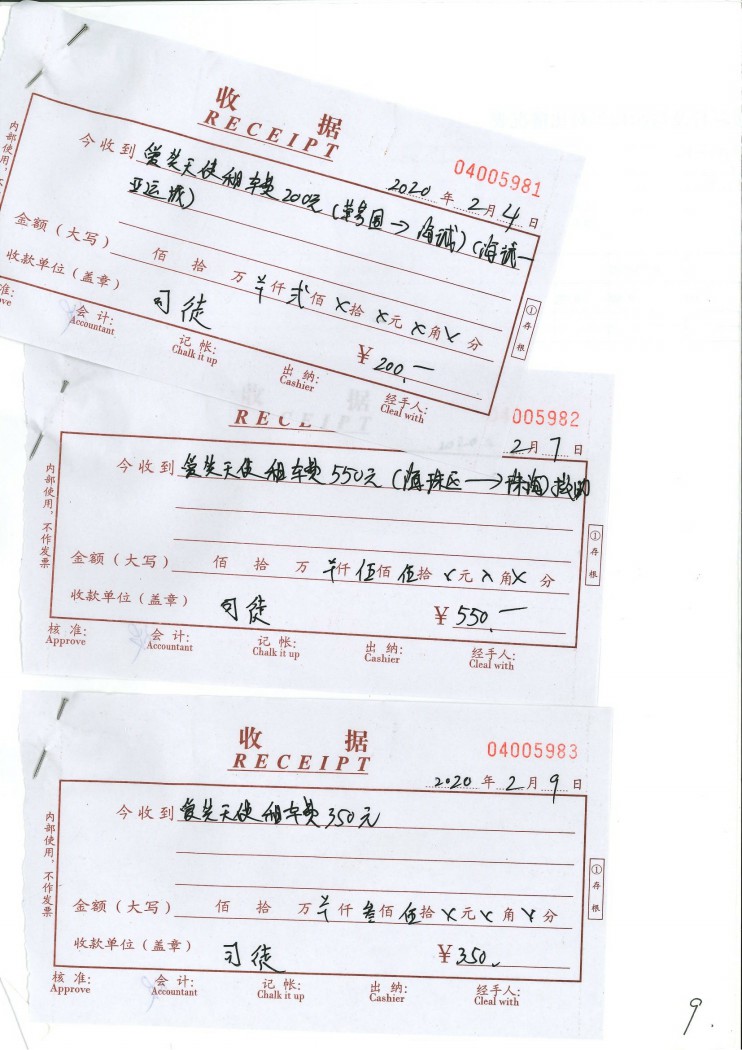 收 据
RECEIPT
04005981
2020 年 2 月 4 日
今收到 爱芙天使租车费200元 ( → 海诚) (海诚一
亚运城)
金额(大写) 佰 拾 万 仟 弍 佰 ㄨ 拾 ㄨ 元 ㄨ 角 ㄨ 分
收款单位(盖章) 司徒 ¥ 200.一
准: 会 计: 记 帐: 出 纳: 经手人:
ove Accountant Chalk it up Cashier Cleal with
内部使用,不
① 存根
收 据
RECEI
005982
2 月 7 日
今收到 爱芙天使租车费550元 (海珠区 → 珠海) 救助
金额(大写) 佰 拾 万 仟 伍 佰 伍 拾 ㄨ 元 ㄨ 角 ㄨ 分
收款单位(盖章) 司徒 ¥ 550.一
核 准: 会 计: 记 帐: 出 纳: 经手人:
Approve Accountant Chalk it up Cashier Cleal with
内部使用,不作发票
① 存根
收 据
RECEIPT
04005983
2020 年 2 月 9 日
今收到 爱芙天使租车费350元
金额(大写) 佰 拾 万 仟 叁 佰 伍 拾 ㄨ 元 ㄨ 角 ㄨ 分
收款单位(盖章) 司徒 ¥ 350.
核 准: 会 计: 记 帐: 出 纳: 经手人:
Approve Accountant Chalk it up Cashier Cleal with
内部使用,不作发票
① 存根
9.